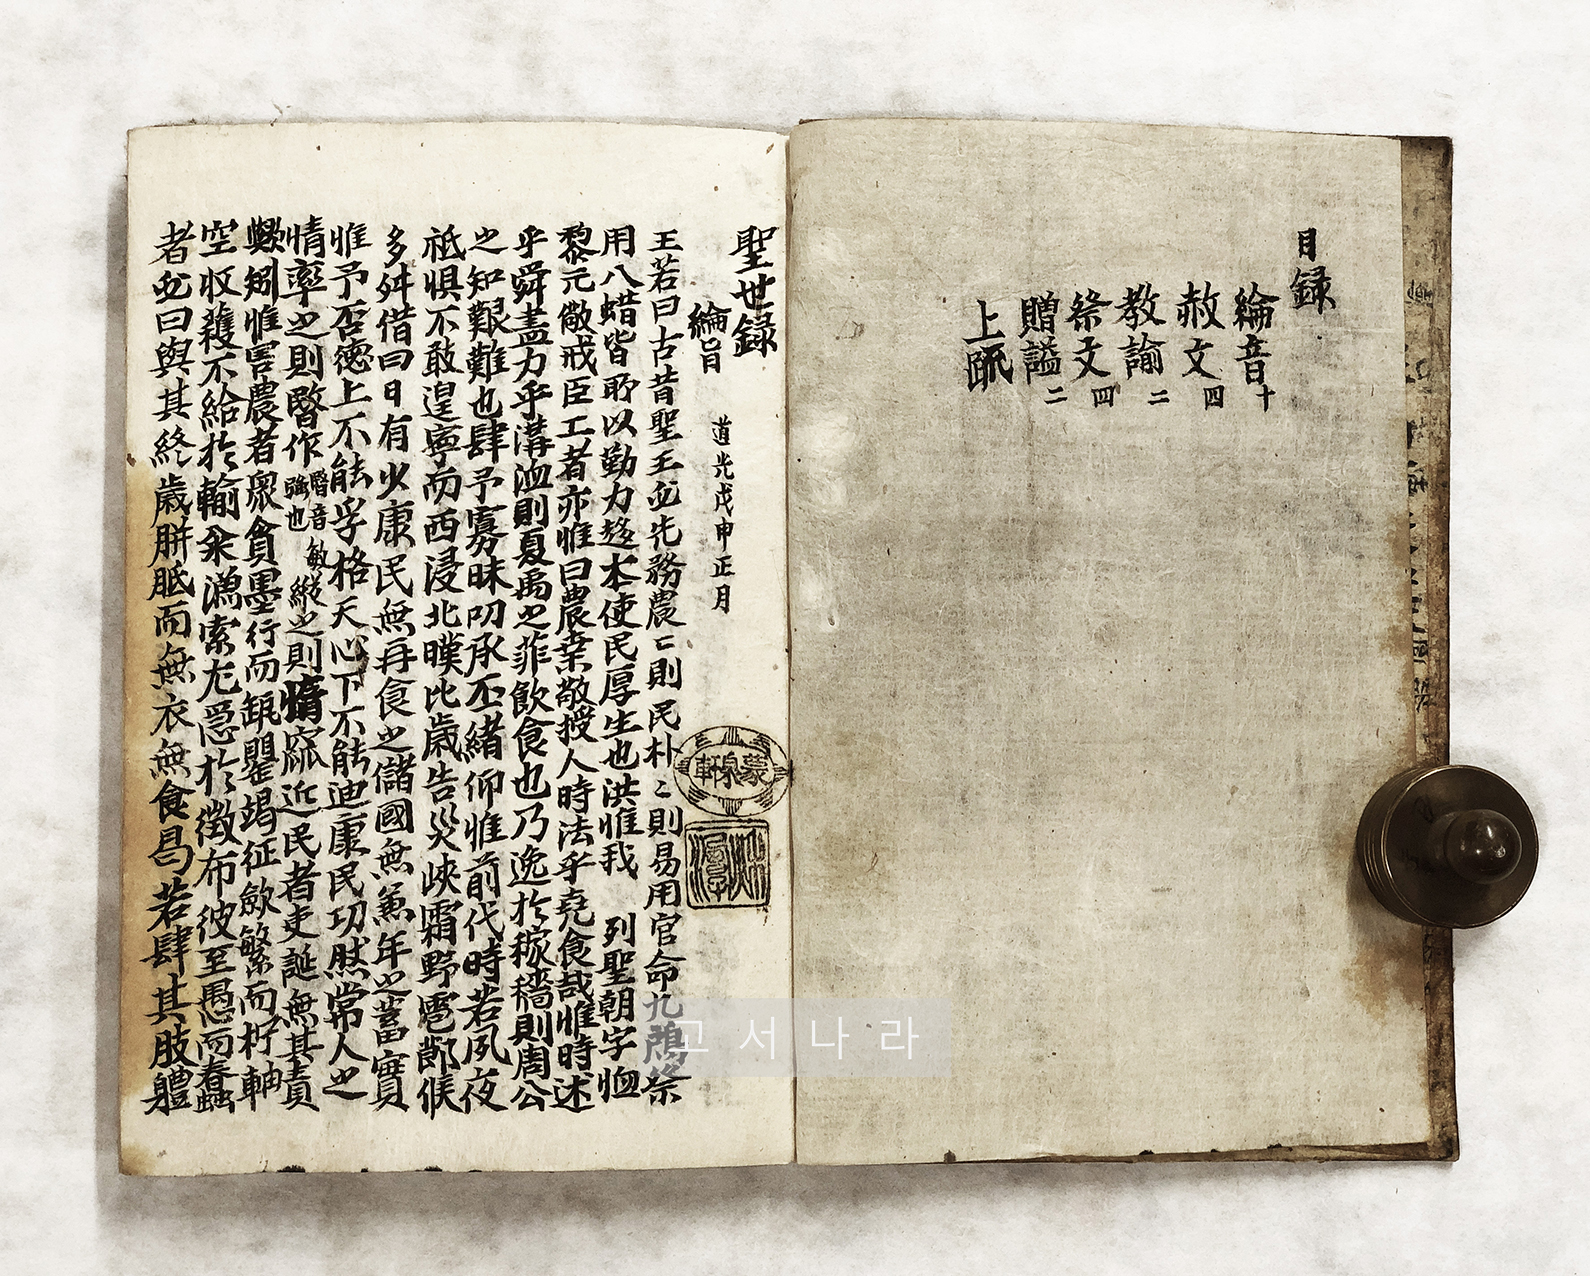 目錄
綸音 十
赦文 四
教諭 二
祭文 四
贈諡 二
上疏
聖世錄
綸音 道光戊申正月
王若曰古昔聖王必先務農〻則民朴〻則易用官命九鳸祭
用八蜡皆所以勤力趍本使民厚生也洪惟我 列聖朝字恤
黎元儆戒臣工者亦惟曰農桒敬授人時法乎堯食哉惟時述
乎舜盡力乎溝洫則夏禹之菲飮食也乃逸於稼穡則周公
之知艱難也肆予寡昧叨承丕緒仰惟前代時若夙夜
祗惧不敢遑寧而西浸北暵比歲告災峽霜野雹鄭候
多舛借曰日有少康民無再食之儲國無兼年之蓄實
惟予否德上不能孚格天心下不能迪康民功肰常人之
情率之則暋作 暋音敏強也 縱之則惰窳近民者吏誕無其責
歟矧惟害農者眾貪墨行而瓶罌竭征歛繁而杼軸
空收穫不給於輸汆漁索尨慝於徵布彼至愚而春蟲
者必曰與其終歲胼胝而無衣無食曷若肆其肢軆
고서나라
蒙泉軒